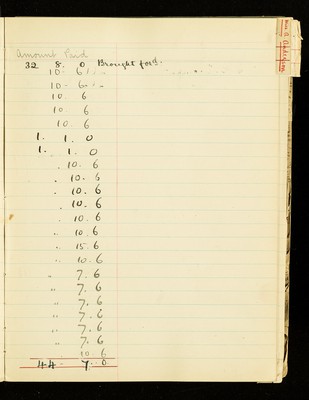 Amount Paid
32 8. 0 Brought for'd.
10. 6
10. 6
10. 6
10 6
10. 6
1. 1. 0
1. 1. 0
" 10. 6
" 10. 6
" 10. 6
" 10. 6
" 10. 6
" 10. 6
" 15. 6
" 10. 6
" 7. 6
" 7. 6
" 7. 6
" 7. 6
" 7. 6
" 7. 6
10 6
44 - 7 - 0